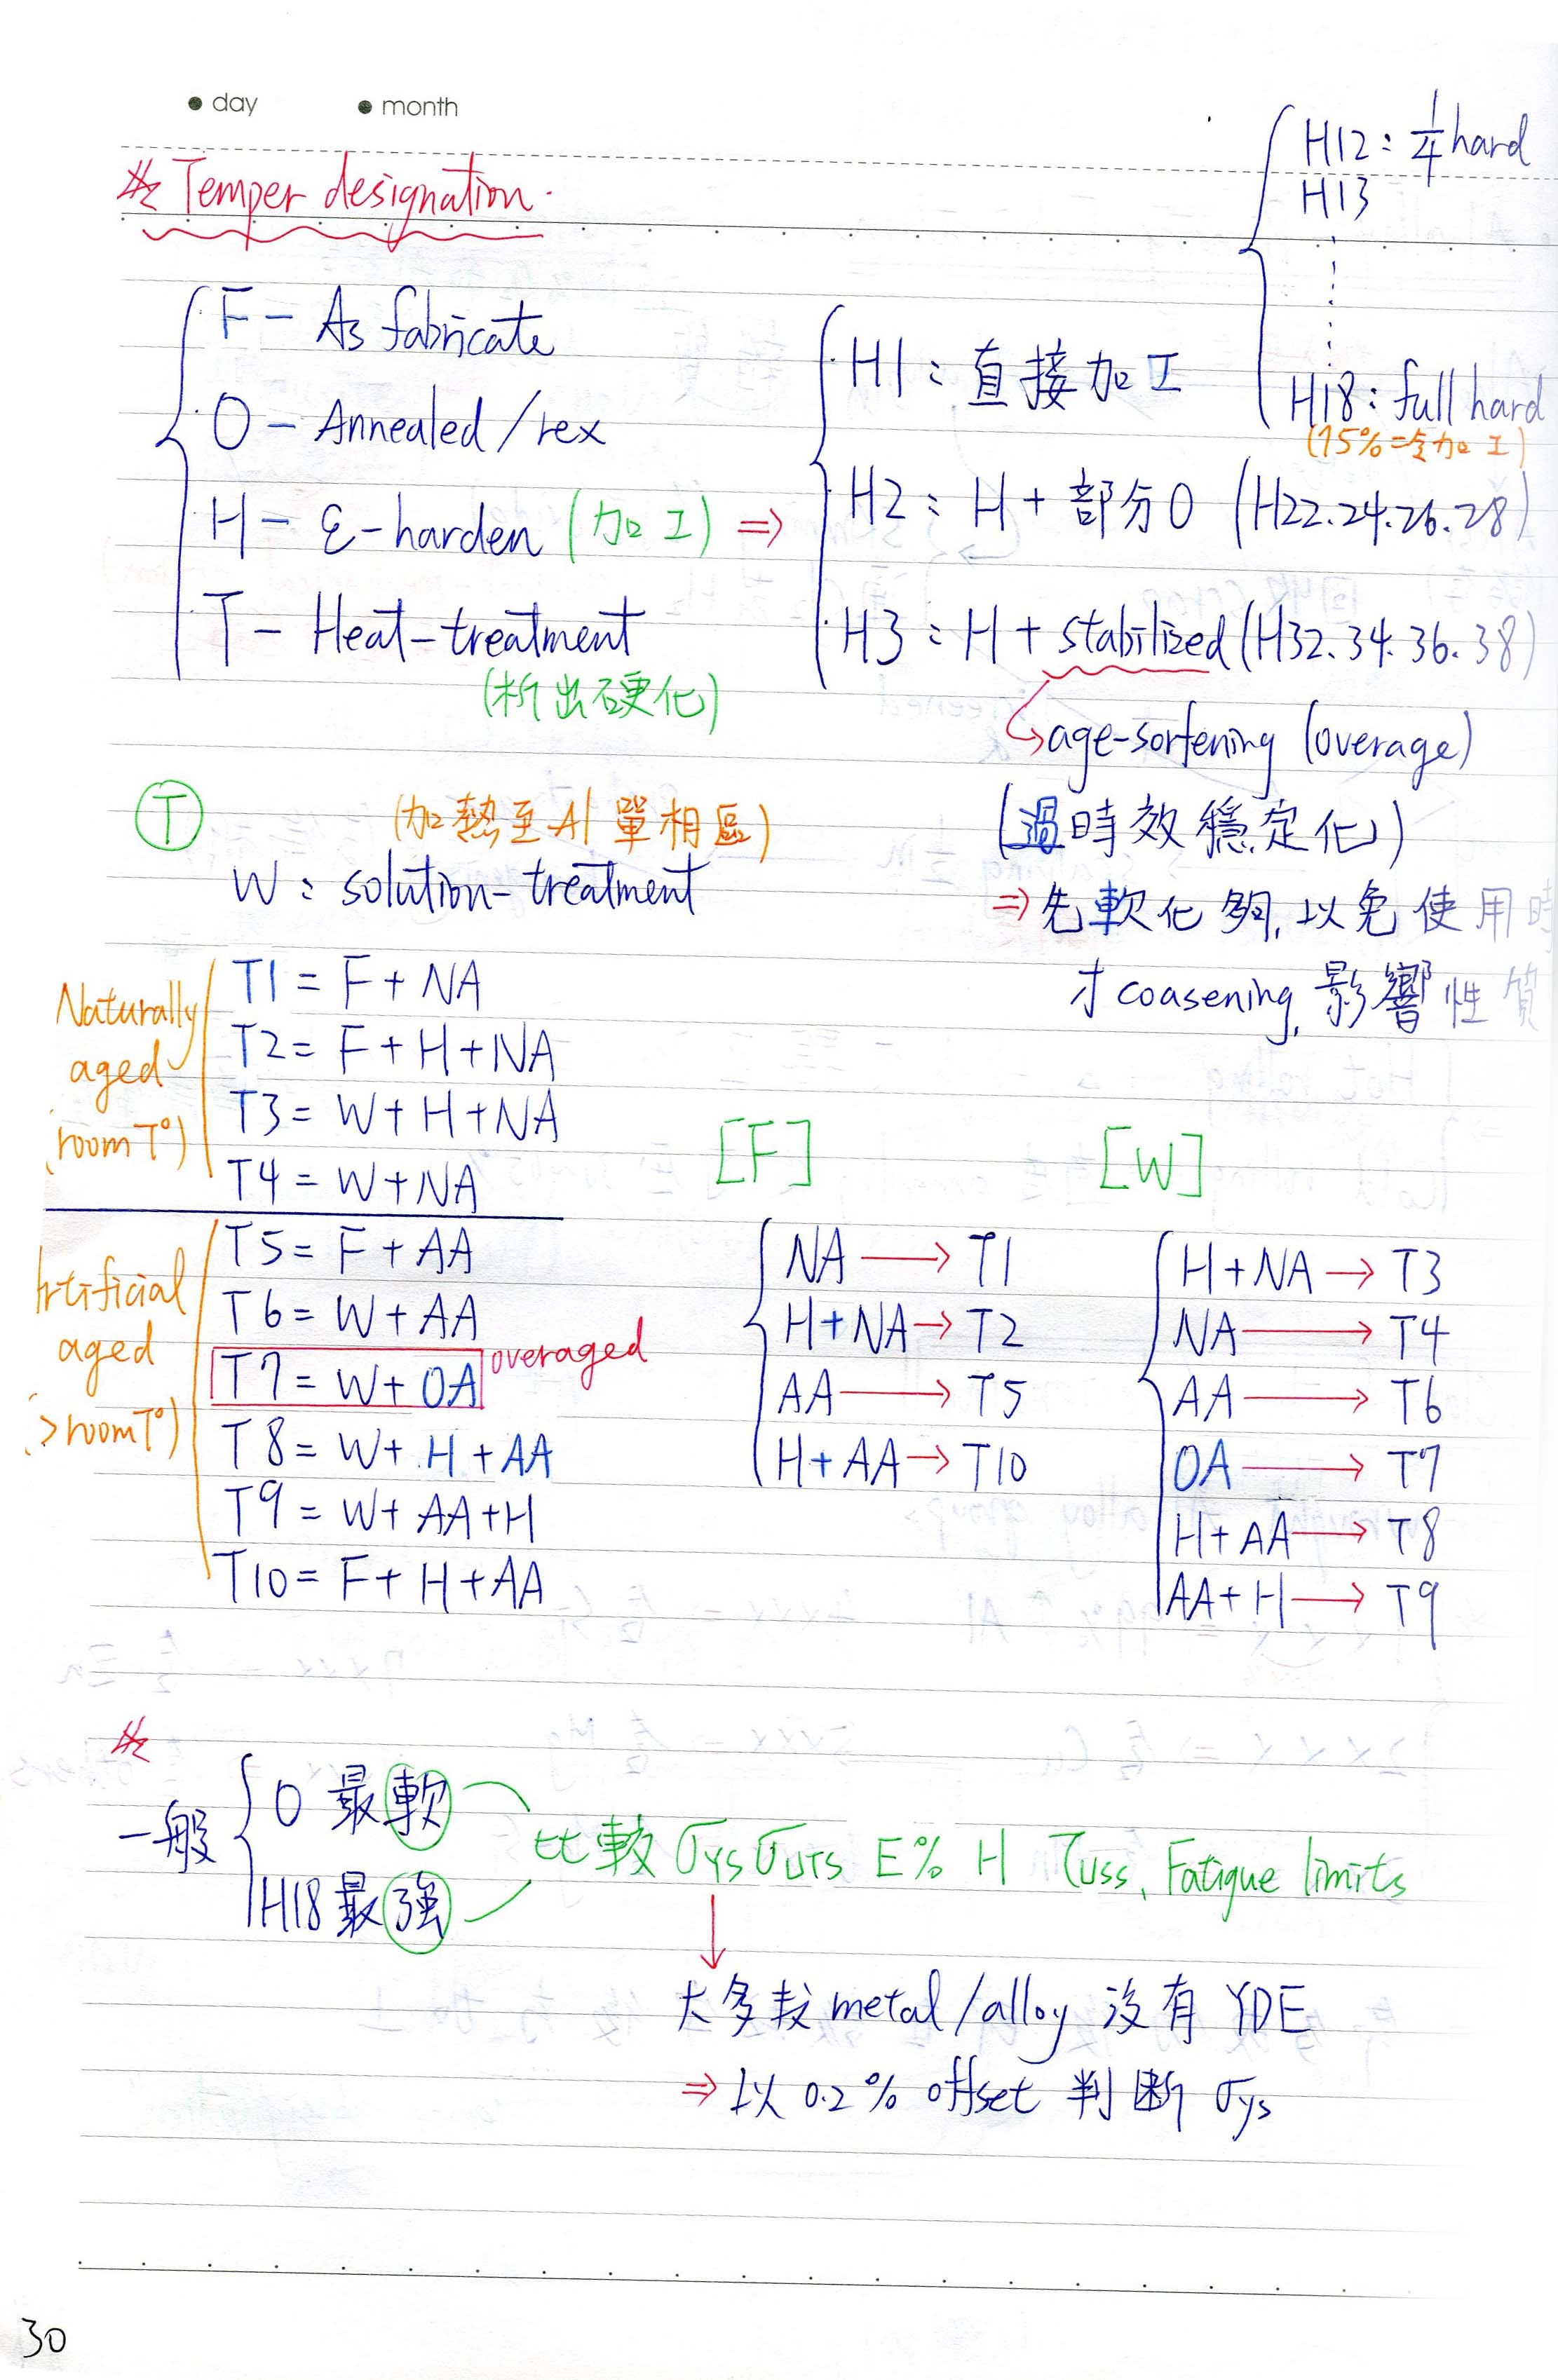 ● day ● month
※ Temper designation.
H12 : 1/4 hard
H13
H18 : full hard
(75%冷加工)
F - As fabricate
O - Annealed/rex
H - ε-harden (加工) ⇒
T - Heat-treatment
(析出硬化)
H1 : 直接加工
H2 : H + 部分O (H22.24.26.28)
H3 : H + stabilized (H32.34.36.38)
↳ age-sorfening (overage)
(過時效穩定化)
⇒ 先軟化夠, 以免使用時
才 coasening, 影響性質
Ⓣ (加熱至Al單相區)
W : solution-treatment
Naturally
aged
(room T°)
T1 = F + NA
T2 = F + H + NA
T3 = W + H + NA
T4 = W + NA
rtificial
aged
(>room T°)
T5 = F + AA
T6 = W + AA
T7 = W + OA overaged
T8 = W + H + AA
T9 = W + AA + H
T10 = F + H + AA
[F]
NA → T1
H+NA → T2
AA → T5
H+AA → T10
[W]
H+NA → T3
NA → T4
AA → T6
OA → T7
H+AA → T8
AA+H → T9
※
一般
O 最軟
H18 最強
比較 σys σUTS E% H τuss, Fatigue limits
↓
大多數 metal/alloy 沒有 YDE
⇒ 以 0.2% offset 判斷 σys
30